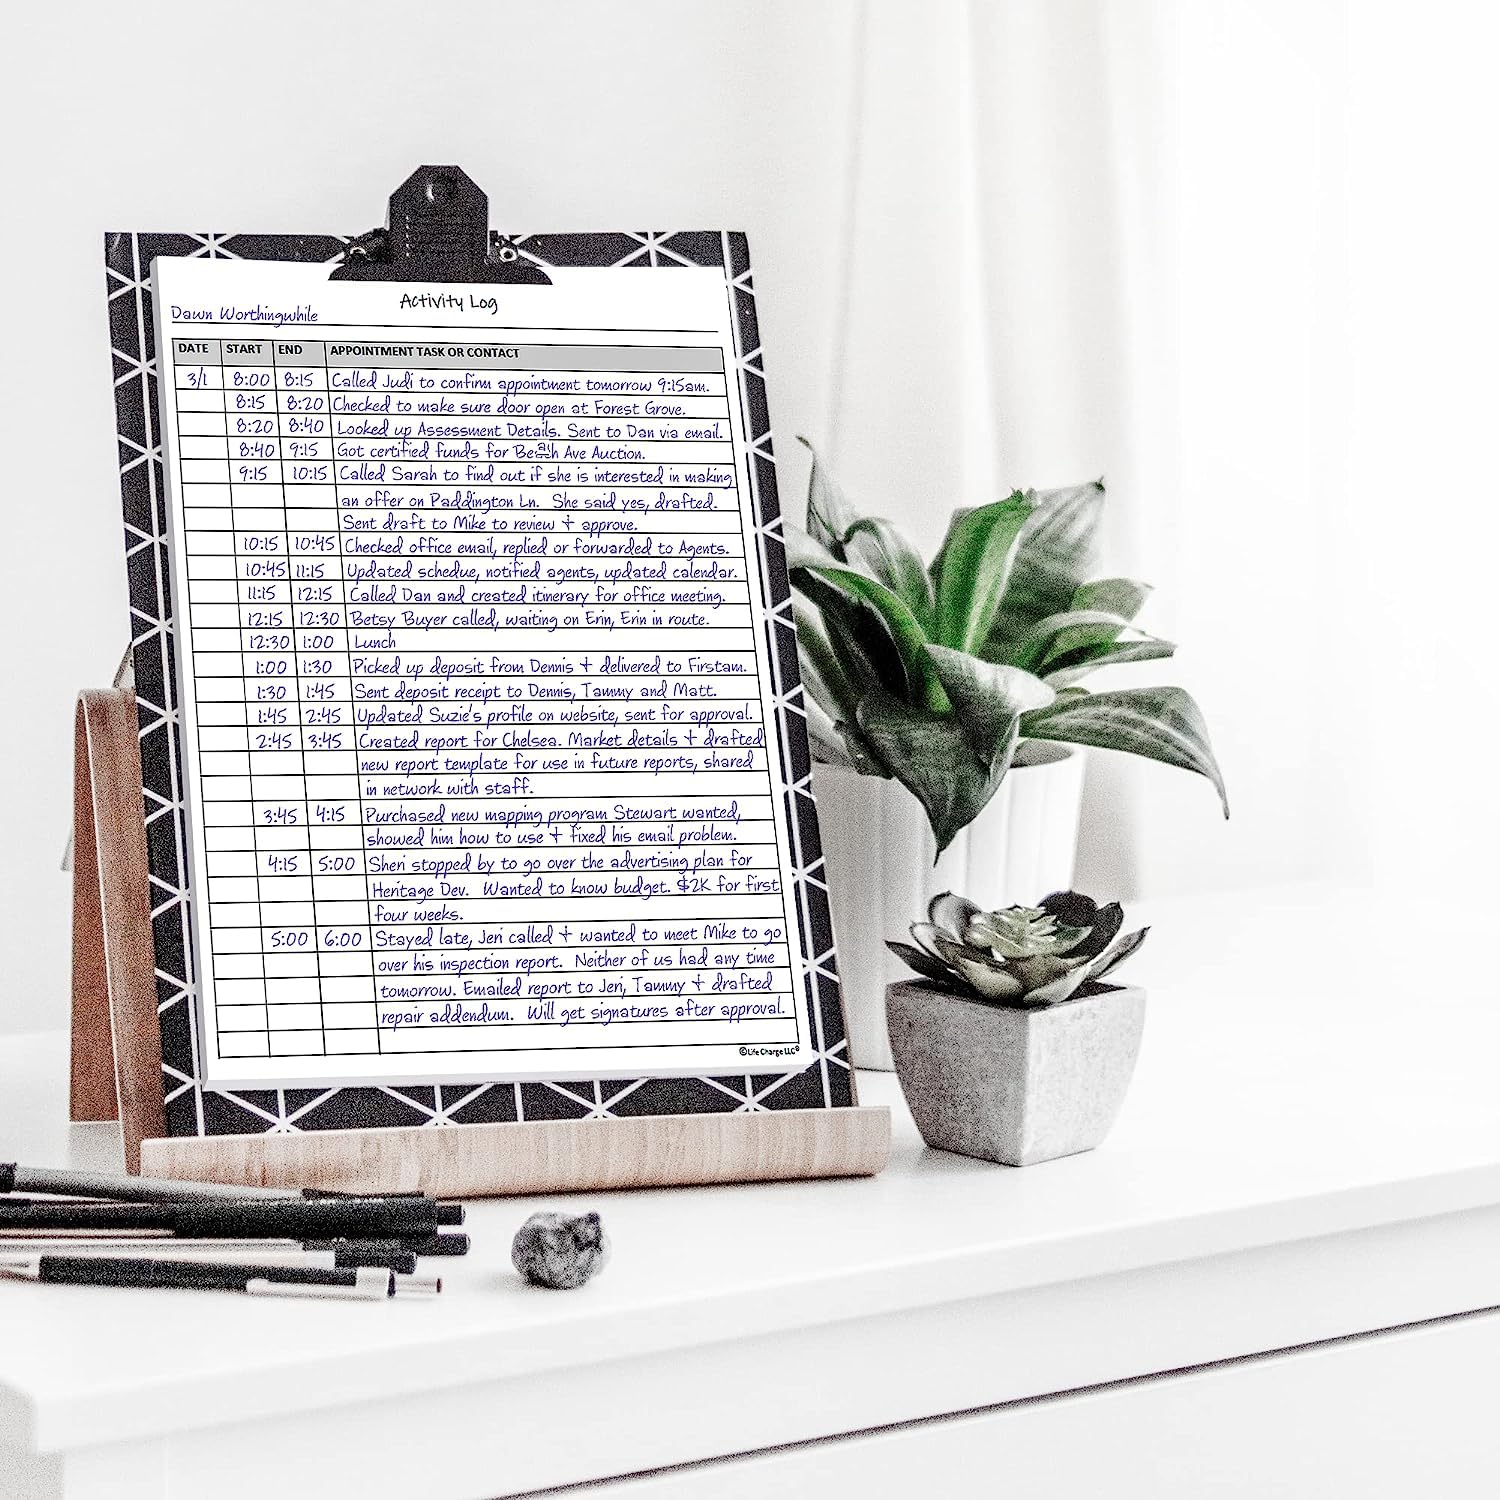 Activity Log
Dawn Worthingwhile
DATE START END APPOINTMENT TASK OR CONTACT
3/1 8:00 8:15 Called Judi to confirm appointment tomorrow 9:15am.
8:15 8:20 Checked to make sure door open at Forest Grove.
8:20 8:40 Looked up Assessment Details. Sent to Dan via email.
8:40 9:15 Got certified funds for Ave Auction.
9:15 10:15 Called Sarah to find out if she is interested in making
an offer on Paddington Ln. She said yes, drafted.
Sent draft to Mike to review + approve.
10:15 10:45 Checked office email, replied or forwarded to Agents.
10:45 11:15 Updated schedue, notified agents, updated calendar.
11:15 12:15 Called Dan and created itinerary for office meeting.
12:15 12:30 Betsy Buyer called, waiting on Erin, Erin in route.
12:30 1:00 Lunch
1:00 1:30 Picked up deposit from Dennis + delivered to Firstam.
1:30 1:45 Sent deposit receipt to Dennis, Tammy and Matt.
1:45 2:45 Updated Suzie's profile on website, sent for approval.
2:45 3:45 Created report for Chelsea. Market details + drafted
new report template for use in future reports, shared
in network with staff.
3:45 4:15 Purchased new mapping program Stewart wanted,
showed him how to use + fixed his email problem.
4:15 5:00 Sheri stopped by to go over the advertising plan for
Heritage Dev. Wanted to know budget. $2K for first
four weeks.
5:00 6:00 Stayed late, Jeri called + wanted to meet Mike to go
over his inspection report. Neither of us had any time
tomorrow. Emailed report to Jeri, Tammy + drafted
repair addendum. Will get signatures after approval.
©Life Charge LLC®